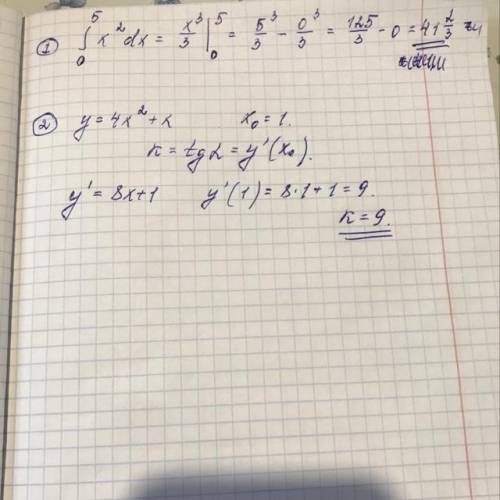 ① ∫₀⁵ x² dx = x³/3 |₀⁵ = 5³/3 - 0³/3 = 125/3 - 0 = 41 2/3
② y = 4x² + x x₀ = 1.
k = tg α = y'(x₀).
y' = 8x + 1 y'(1) = 8·1 + 1 = 9.
k = 9.